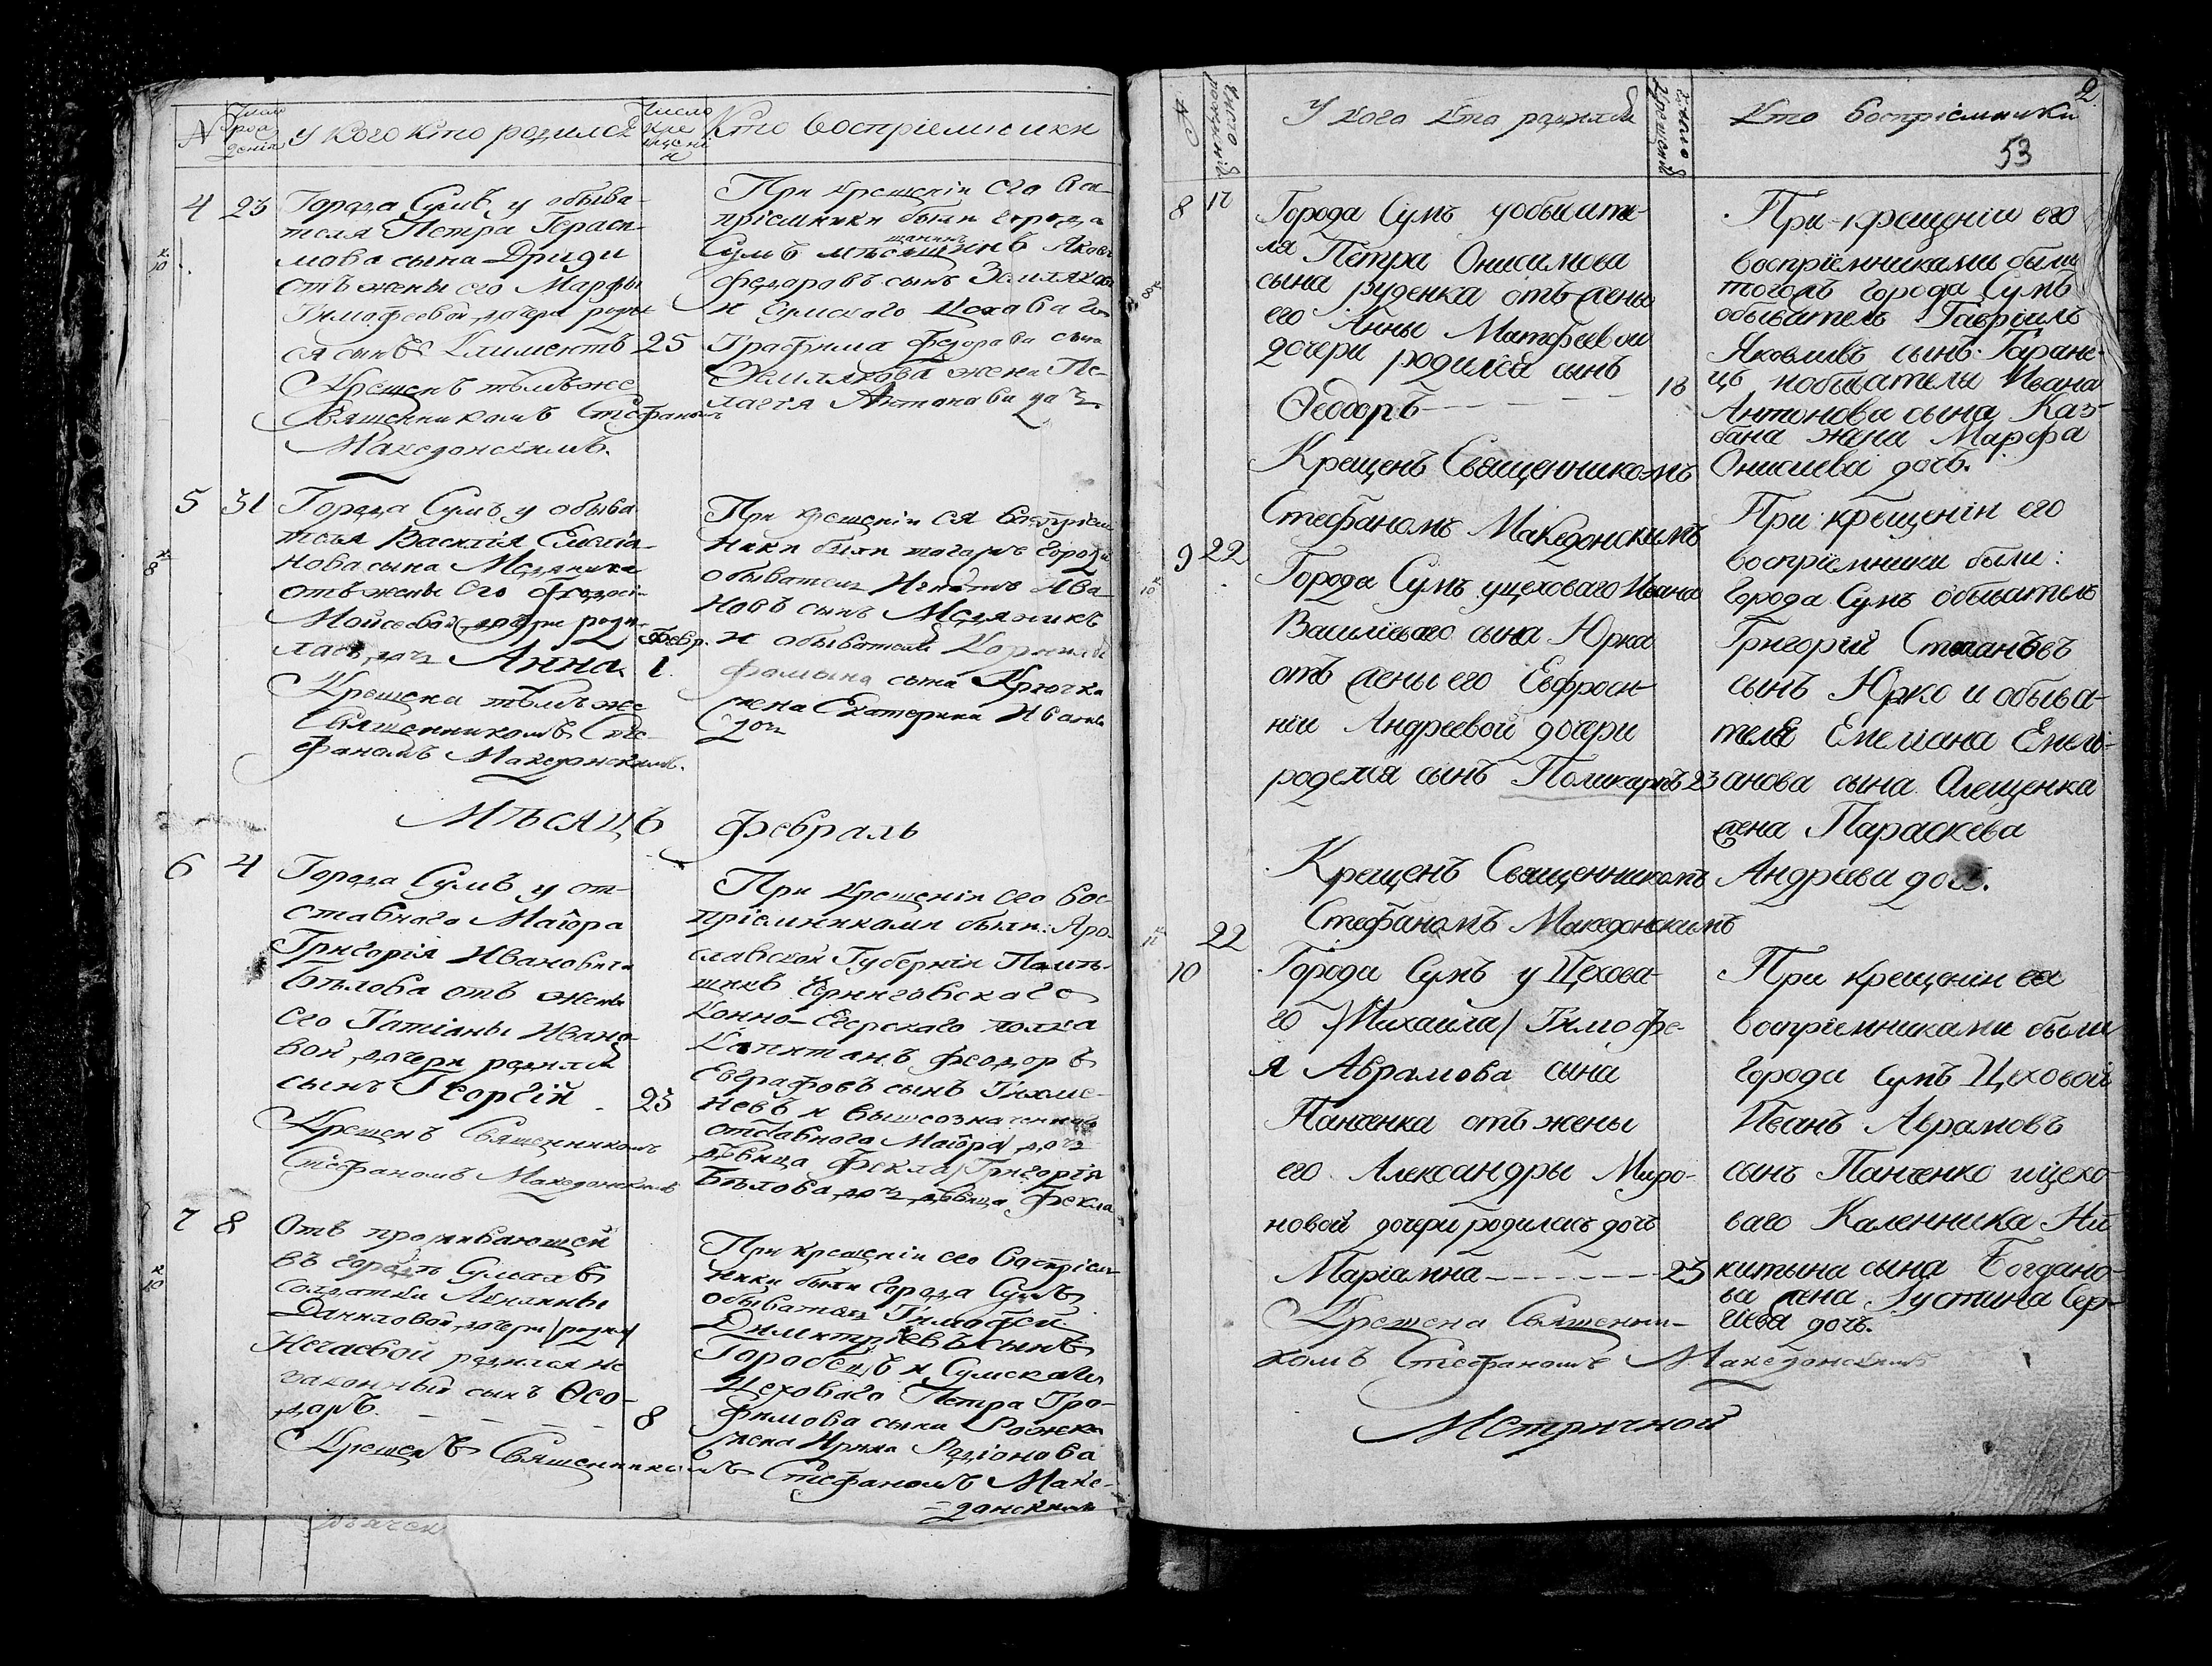 №
Число рождения
У кого кто родился
Число крещения
Кто восприемники
4 23
Города Сумъ у обыва-
теля Петра Гераси-
мова сына Дриди
отъ жены его Марфы
Тимофеевой дочери роди
ся сынъ Климентъ 25
Крещенъ тѣмъ же
Священникомъ Стефаномъ
Македонскимъ.
При крещеніи его Вос-
пріемники были города
Сумъ мѣщанинъ Яковъ
Федоровъ сынъ
и Сумскаго Цехова го
Трофима Федорова сына
жена Пе-
лагія Антонова доч.
5 31
Города Сумъ у обыва
теля Василія Емелія-
нова сына Мелника
отъ жены его Феодосі-
Мойсеевой дочери роди-
лась доч Анна Февр. 1.
Крещена тѣмъ же
Священникомъ Сте-
фаномъ Македонскимъ.
При крещеніи ея Воспріем
ники были тогожъ города
обыватель Игнатъ Ива-
новъ сынъ Мелникъ
и обывателя
Фомина сына Крючка
жена Екатерина Иванова
доч
Мѣсяцъ Февраль
6 4
Города Сумъ у от-
ставного Маіора
Григорія Ивановича
Бѣлова отъ жены
его Татіаны Ивано-
вой дочери родился
сынъ Георгій - 23
Крещенъ Священникомъ
Стефаномъ Македонскимъ
При Крещеніи его Вос-
пріемниками были: Яро-
славской Губерніи Помѣ-
щикъ Черниговскаго
Конно-Егерскаго полка
Капитанъ Феодоръ
Евграфовъ сынъ Тихме-
невъ и вышеозначеннаго
отставного Маіора доч
дѣвица Фекла Григорія
Бѣлова доч дѣвица Фекла
7 8
Отъ проживающей
въ городѣ Сумахъ
солдатки
Даниловой дочери родил
Нечаевой родился не
законный сынъ Ѳео-
доръ. - - - - 8
Крещенъ Священникомъ Стефаномъ Маке-
донскимъ
При крещеніи его Воспріем-
ники были города Сумъ
обыватель Тимофей
Димитріевъ сынъ
Горобецъ и Сумскаго
Цеховаго Петра Тро-
фимова сына
жена Ирина Родіонова
2.
№
Число рожденій
У кого кто родился
Число крещеній
Кто воспріемники
53
8 17
Города Сумъ у обывате-
ля Петра Онисимова
сына руденка отъ жены
его Анны Матфеевои
дочери родился сынъ
Ѳеодоръ - - - - 18
Крещенъ Священникомъ
Стефаномъ Македонскимъ
При крещеніи его
воспріемниками были
тогожъ города Сумъ
обыватель Гавріилъ
Яковливъ сынъ Гаране-
цъ иобывателя Ивана
Антонова сына Каз-
бана жена Марфа
Онисиева дочь.
9 22
Города Сумъ уцеховаго Ивана
Василіеваго сына Юрка
отъ жены его Евфроси-
ніи Андреевой дочери
родился сынъ Поликарпъ 23
Крещенъ Священникомъ
Стефаномъ Македонскимъ
При крещеніи его
воспріемники были:
города Сумъ Обыватель
Григорій Степановъ
сынъ Юрко и обыва-
теля Емеліана Емелі-
анова сына Олещенка
жена Параскева
Андреева доч.
10 22
Города Сумъ у Цехова-
го /Михаила/ Тимофе-
я Аврамова сына
Панченка отъ жены
его Александры Миро-
новой дочери родилась дочь
Маріамна - - - - - - 23
Крещена Священни-
комъ Стефаномъ Македонскимъ
При крещеніи ея
воспріемниками были
города Сумъ Цеховой
Иванъ Аврамовъ
сынъ Панченко ицехо-
ваго Каленника Ни
китына сына Богдано-
ва жена Іустина Сер-
гіева дочь.
Метричной